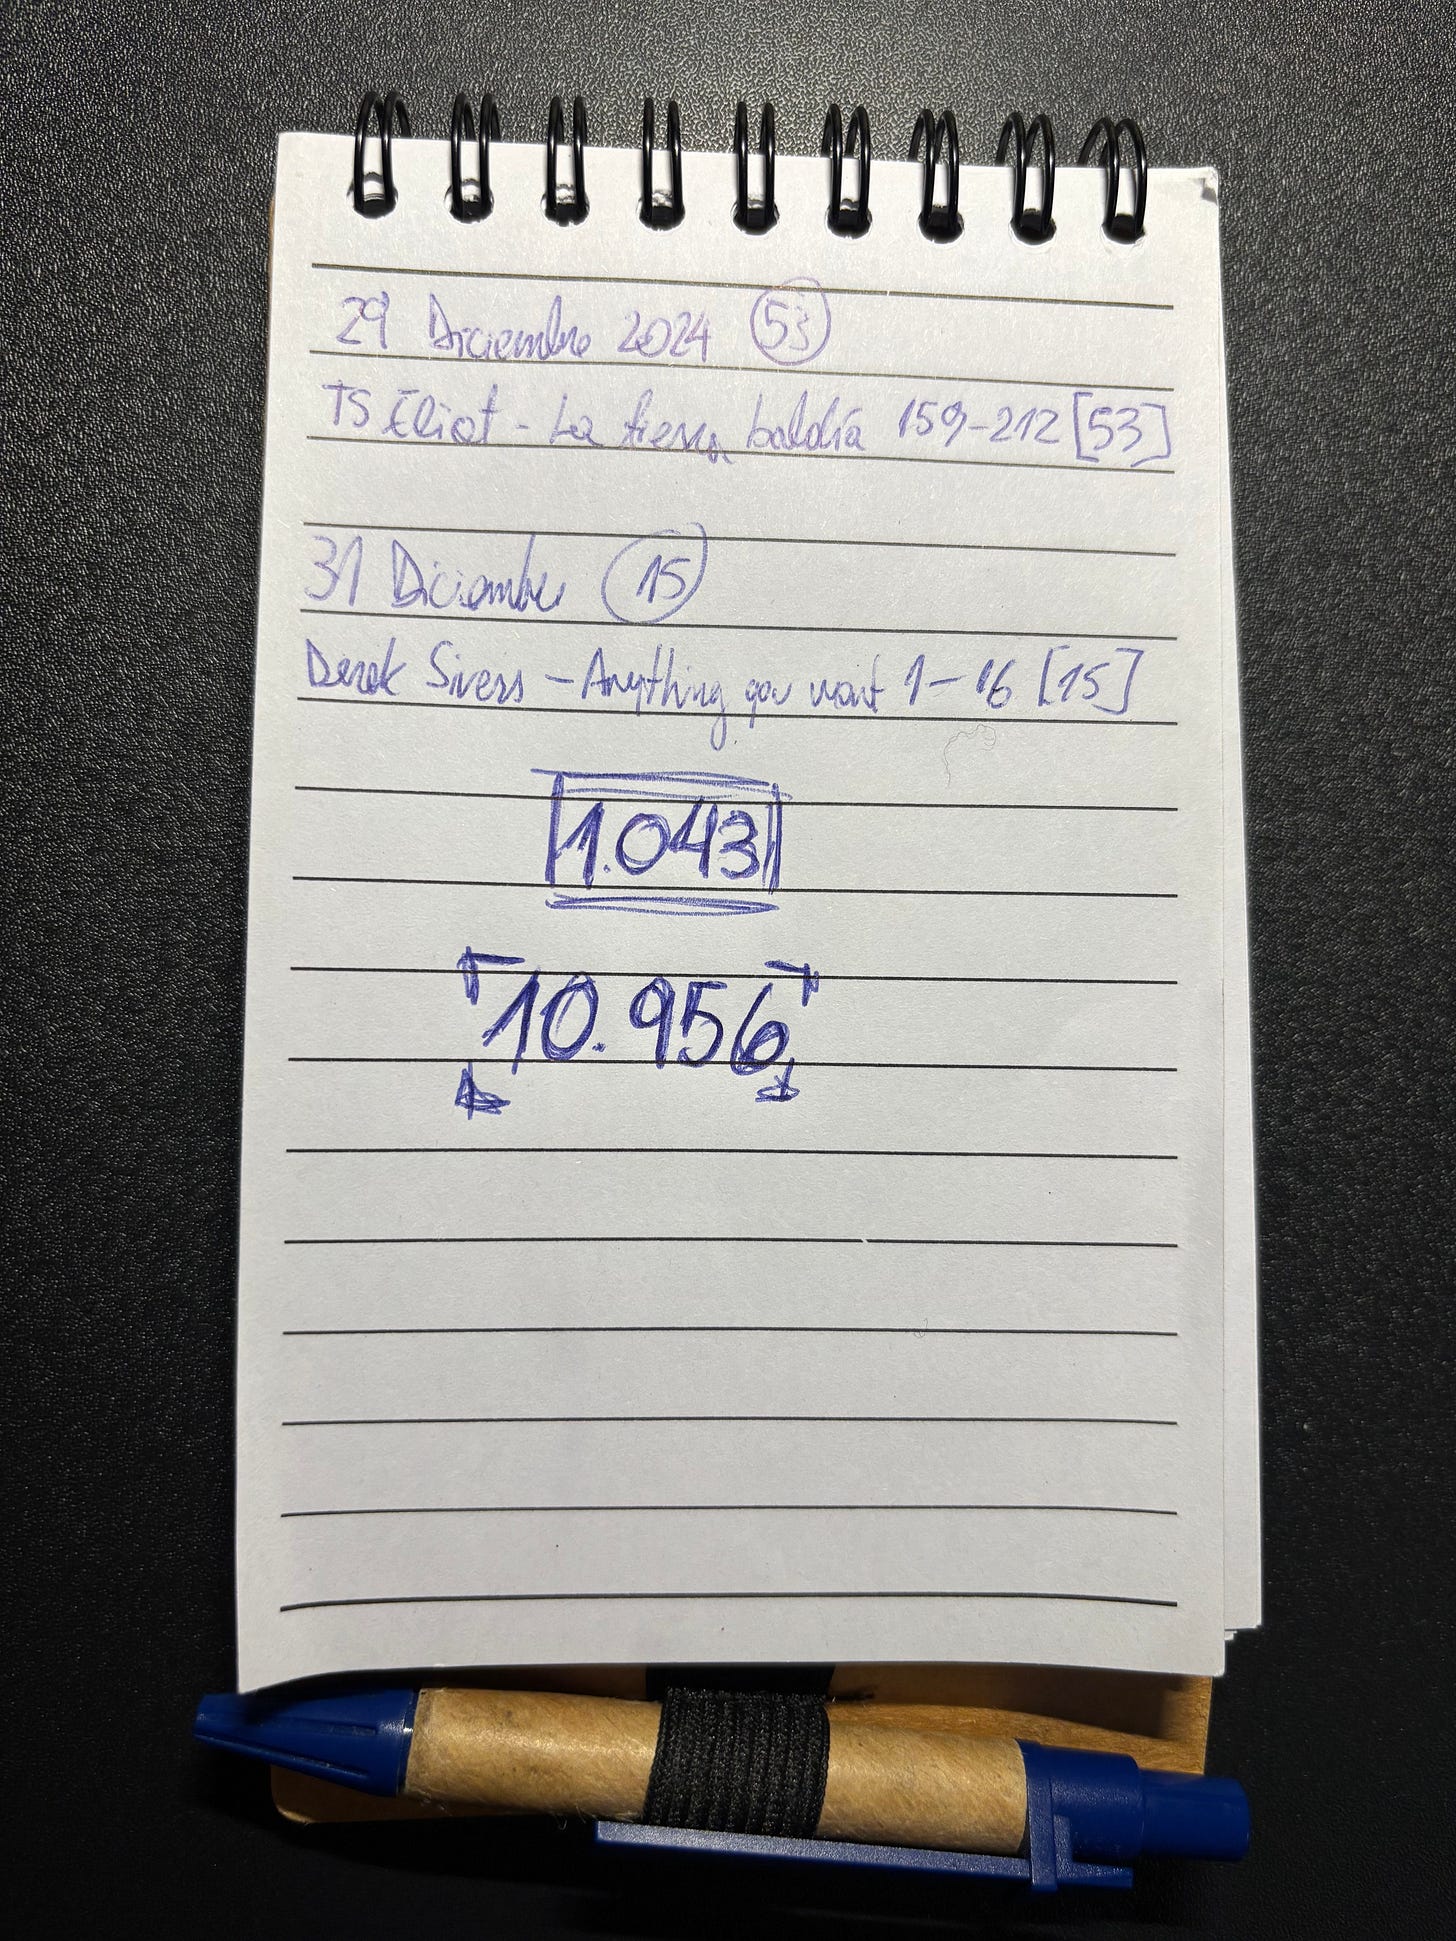 29 Diciembre 2024 53
TS Eliot - La tierra baldía 159-212 [53]
31 Diciembre 15
Derek Sivers - Anything you want 1-16 [15]
1.043
10.956